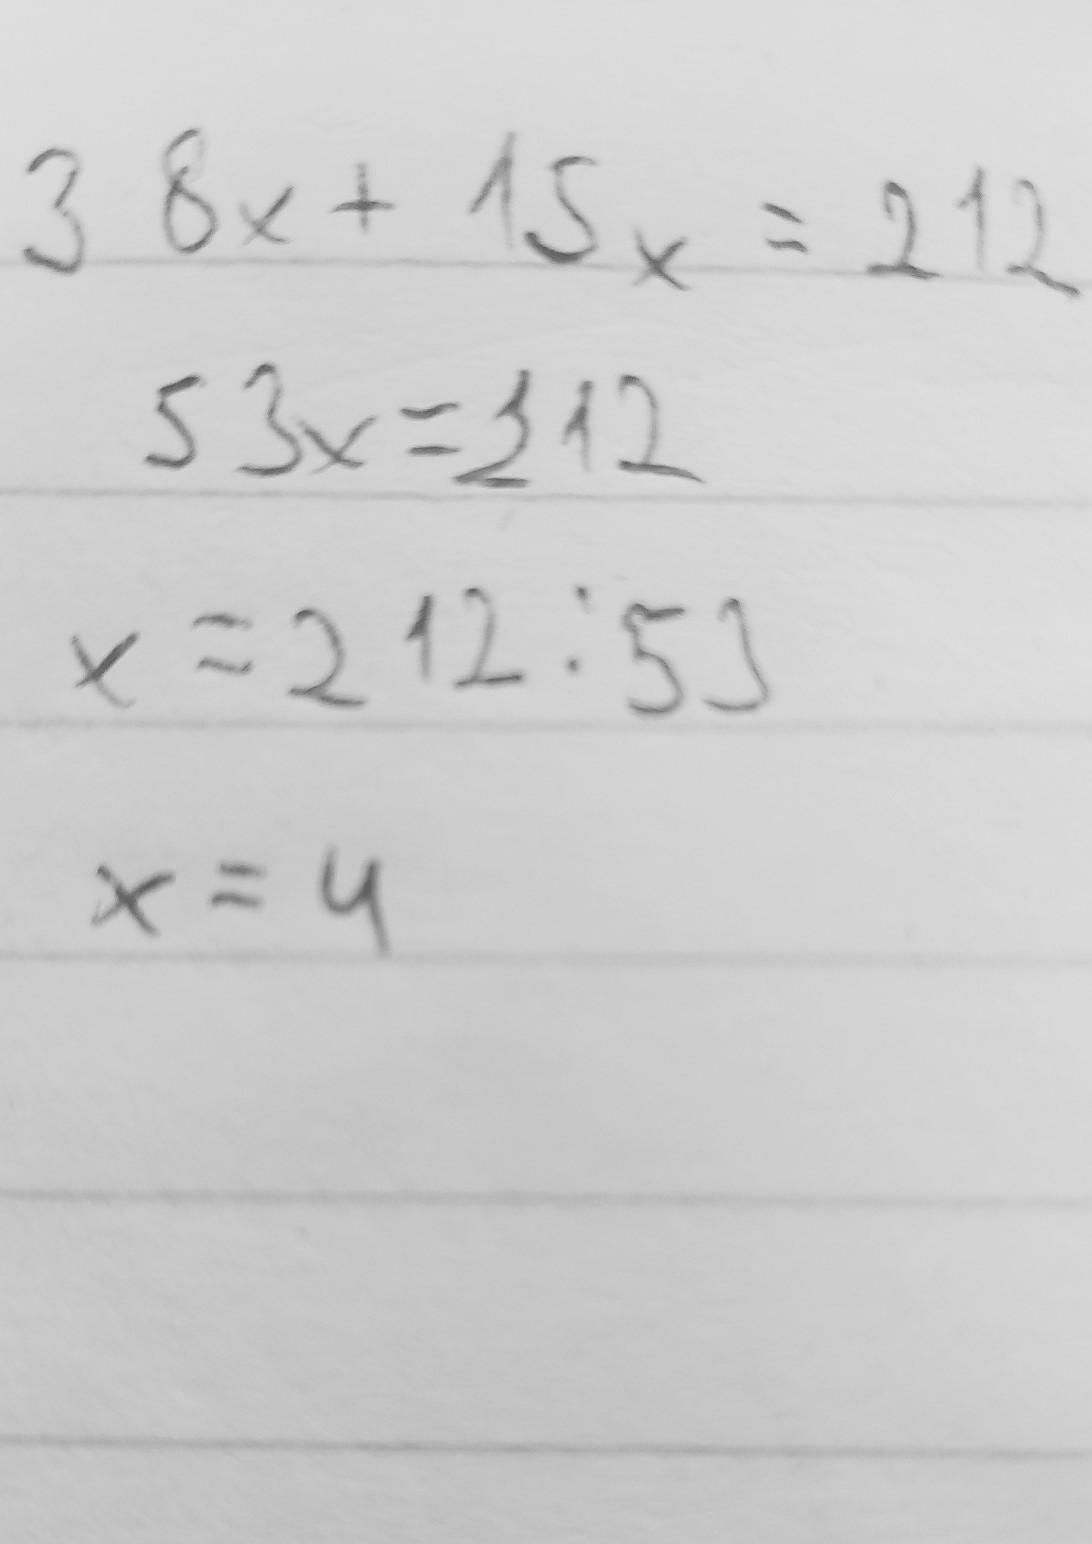 38x + 15x = 212
53x = 212
x = 212 : 53
x = 4